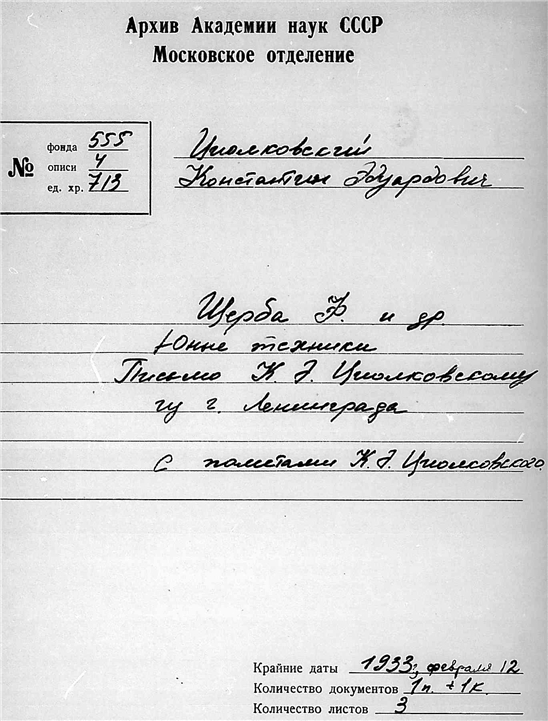 Архив Академии наук СССР
Московское отделение
№
фонда 555
описи 4
ед. хр. 713
Циолковский
Константин Эдуардович
Щерба Ф. и др.
Юные техники
Письмо К. Э. Циолковскому
из г. Ленинграда
С пометами К. Э. Циолковского.
Крайние даты 1933, февраля 12
Количество документов 1п. + 1к.
Количество листов 3